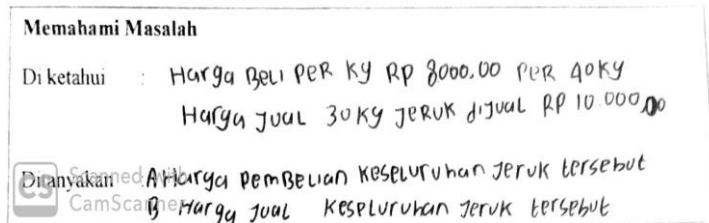 Memahami Masalah
Di ketahui : Harga Beli PER Kg Rp 8000.00 PER 40Kg
Harga Jual 30Kg JERUK dijual RP 10.000,00
Ditanyakan A Harga PEMBELIAN KESELURUHAN JERUK tersebut
B Harga Jual KESELURUHAN JERUK tersebut
CS Scanned with
CamScanner